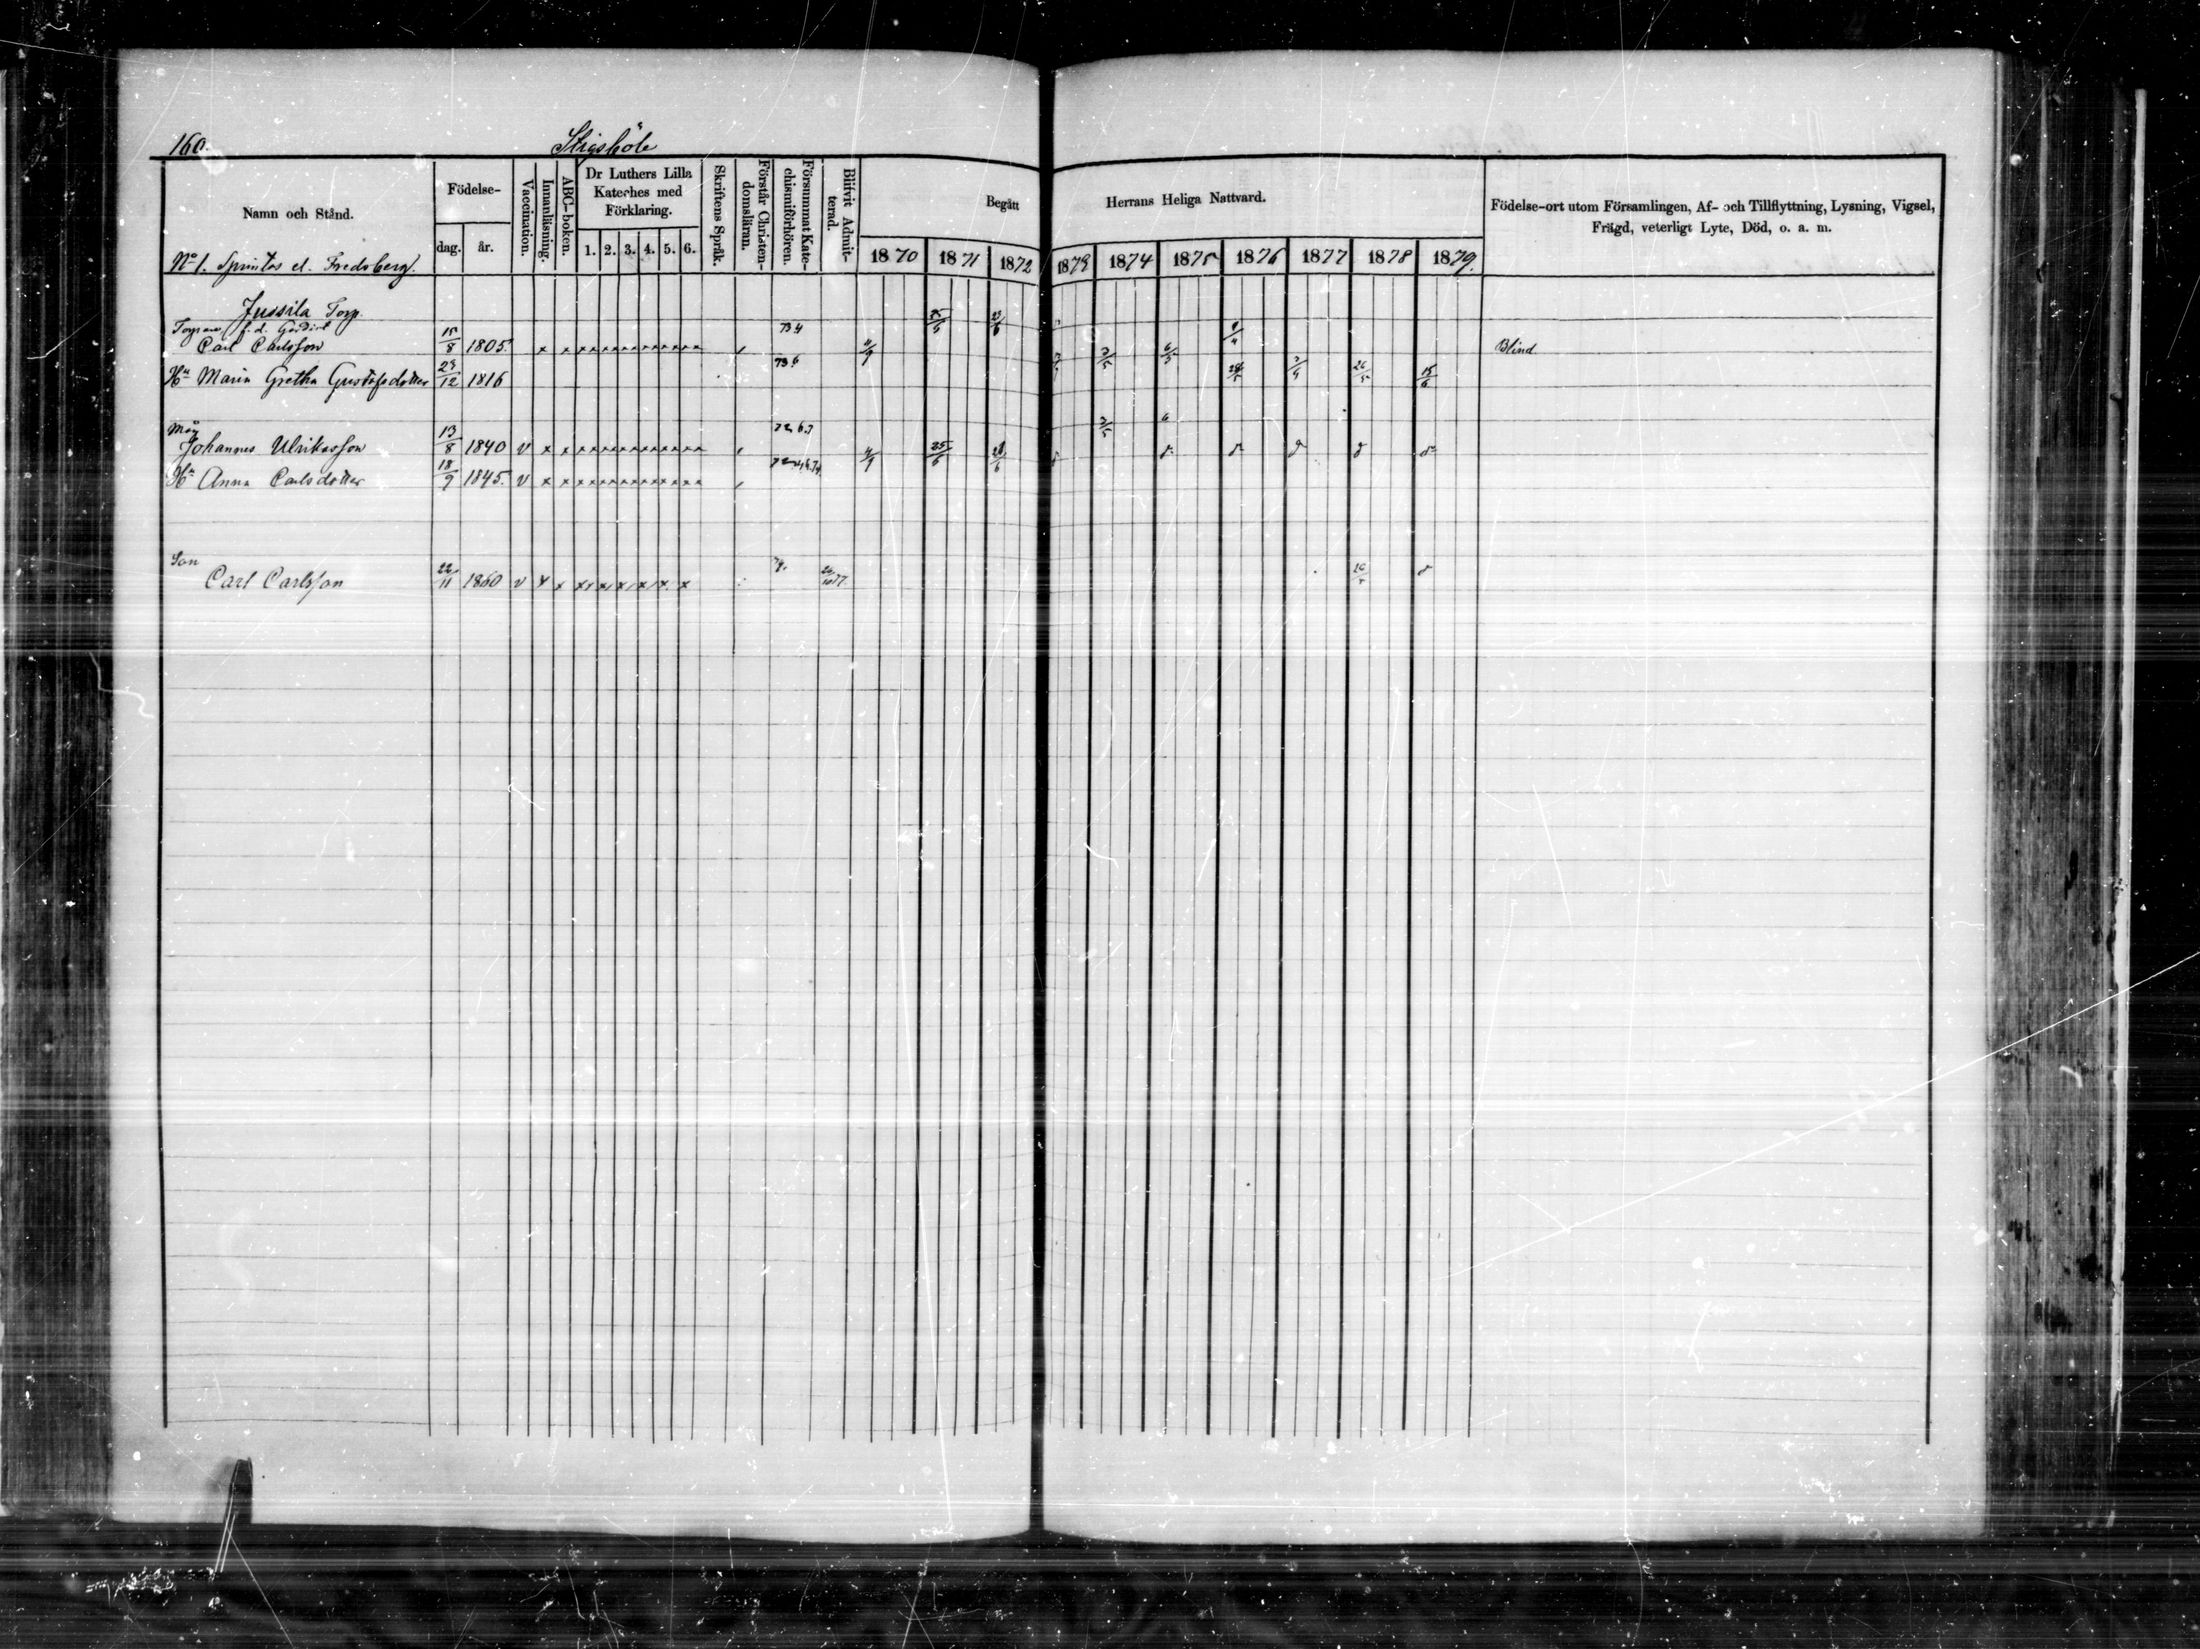 160.
Stigsböle
Namn och Stånd.
Födelse-
dag. år.
Vaccination.
Innanläsning.
ABC-boken.
Dr Luthers Lilla Kateches med Förklaring.
1. 2. 3. 4. 5. 6.
Skriftens Språk.
Förstår Christendomsläran.
Försummat Katechismiförhören.
Blifvit Admitterad.
Begått Herrans Heliga Nattvard.
1870 1871 1872 1873 1874 1875 1876 1877 1878 1879.
Födelse-ort utom Församlingen, Af- och Tillflyttning, Lysning, Vigsel,
Frägd, veterligt Lyte, Död, o. a. m.
No 1. Fredsberg.
Jussila Torp.
25/6 23/6
Carl Carlsson 15/8 1805. x x x x x x x x x x x x x 73.4 11/9 3/5 6/5 Blind
Hu Maria Gretha Gustafsdotter 29/12 1816 73.6 26/5 15/6
Måg
Johannes Ulriksson 13/8 1840 v x x x x x x x x x x x x x 11/9 25/6 23/6
Hu Anna Carlsdotter 18/9 1845. v x x x x x x x x x x x x x
Son
Carl Carlsson 22/11 1860 v x x x x x x x x 26/5